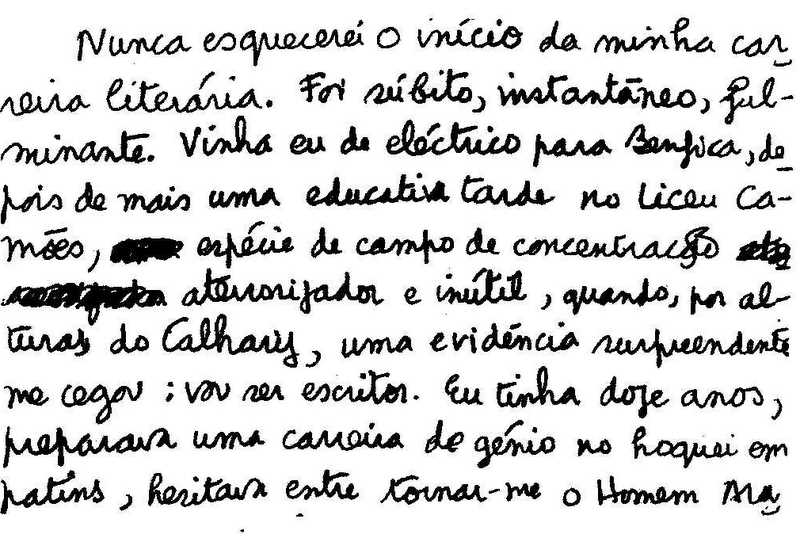 Nunca esquecerei o início da minha car
reira literária. Foi súbito, instantâneo, ful-
minante. Vinha eu de eléctrico para Benfica, de
pois de mais uma educativa tarde no Liceu Ca-
mões, espécie de campo de concentração
aterrorizador e inútil, quando, por al-
turas do Calhariz, uma evidência surpreendente
me cegou: vou ser escritor. Eu tinha doze anos,
preparava uma carreira de génio no hoquei em
patins, hesitava entre tornar-me o Homem Ara